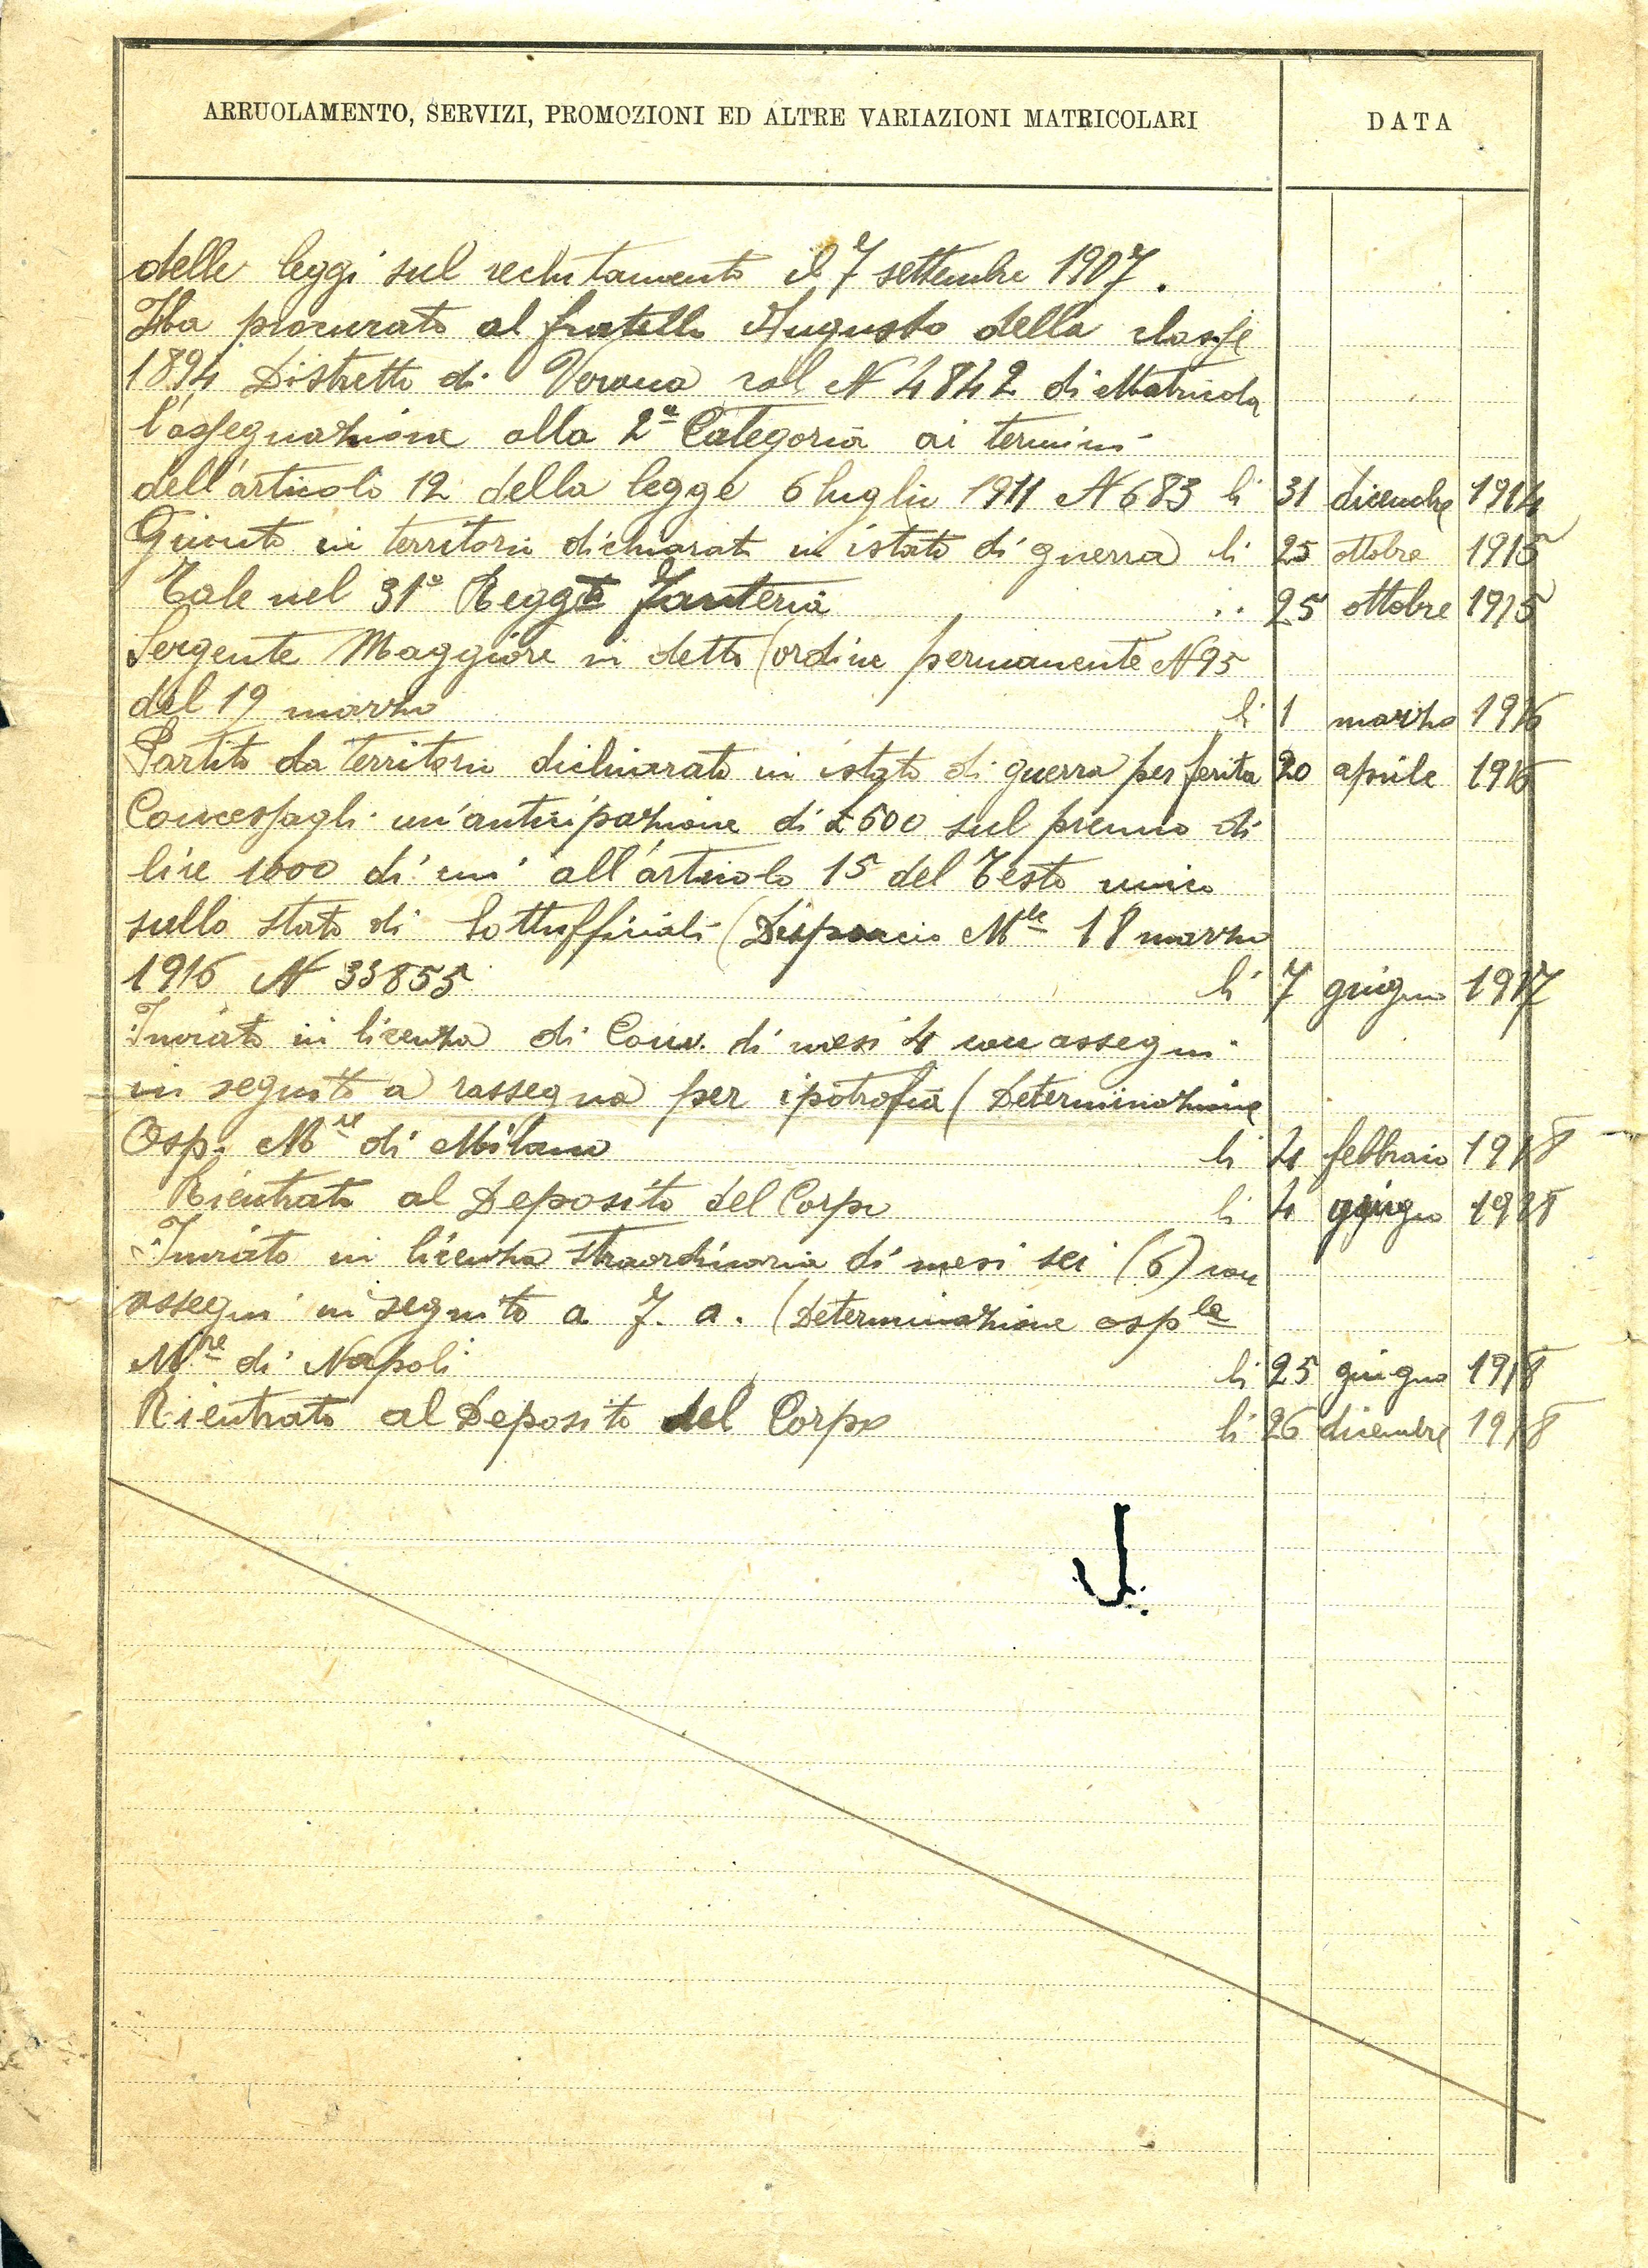 ARRUOLAMENTO, SERVIZI, PROMOZIONI ED ALTRE VARIAZIONI MATRICOLARI DATA
delle leggi sul reclutamento il 7 settembre 1907.
Ha procurato al fratello Augusto della classe
1894 Distretto di Verona col N 4842 di Matricola
l'assegnazione alla 2ª Categoria ai termini
dell'articolo 12 della legge 6 luglio 1911 N 683 li 31 dicembre 1914
Giunto in territorio dichiarato in istato di guerra li 25 ottobre 1915
Tale nel 31º Reggto Fanteria 25 ottobre 1915
Sergente Maggiore in detto (ordine permanente N 95
del 19 marzo li 1 marzo 1916
Partito da territorio dichiarato in istato di guerra per ferita 20 aprile 1916
Concessagli un'anticipazione di £ 500 sul premio di
lire 1000 di cui all'articolo 15 del Testo unico
sullo stato di Sottufficiali (Dispaccio Mle 18 marzo
1916 N 33855 li 7 giugno 1917
Inviato in licenza di Conv. di mesi 4 con assegni
in seguito a rassegna per ipotrofia (Determinazione
Osp. Mre di Milano li 4 febbraio 1918
Rientrato al Deposito del Corpo li 4 giugno 1918
Inviato in licenza straordinaria di mesi sei (6) con
assegni in seguito a F. a. (Determinazione osple
Mre di Napoli li 25 giugno 1918
Rientrato al Deposito del Corpo li 26 dicembre 1918